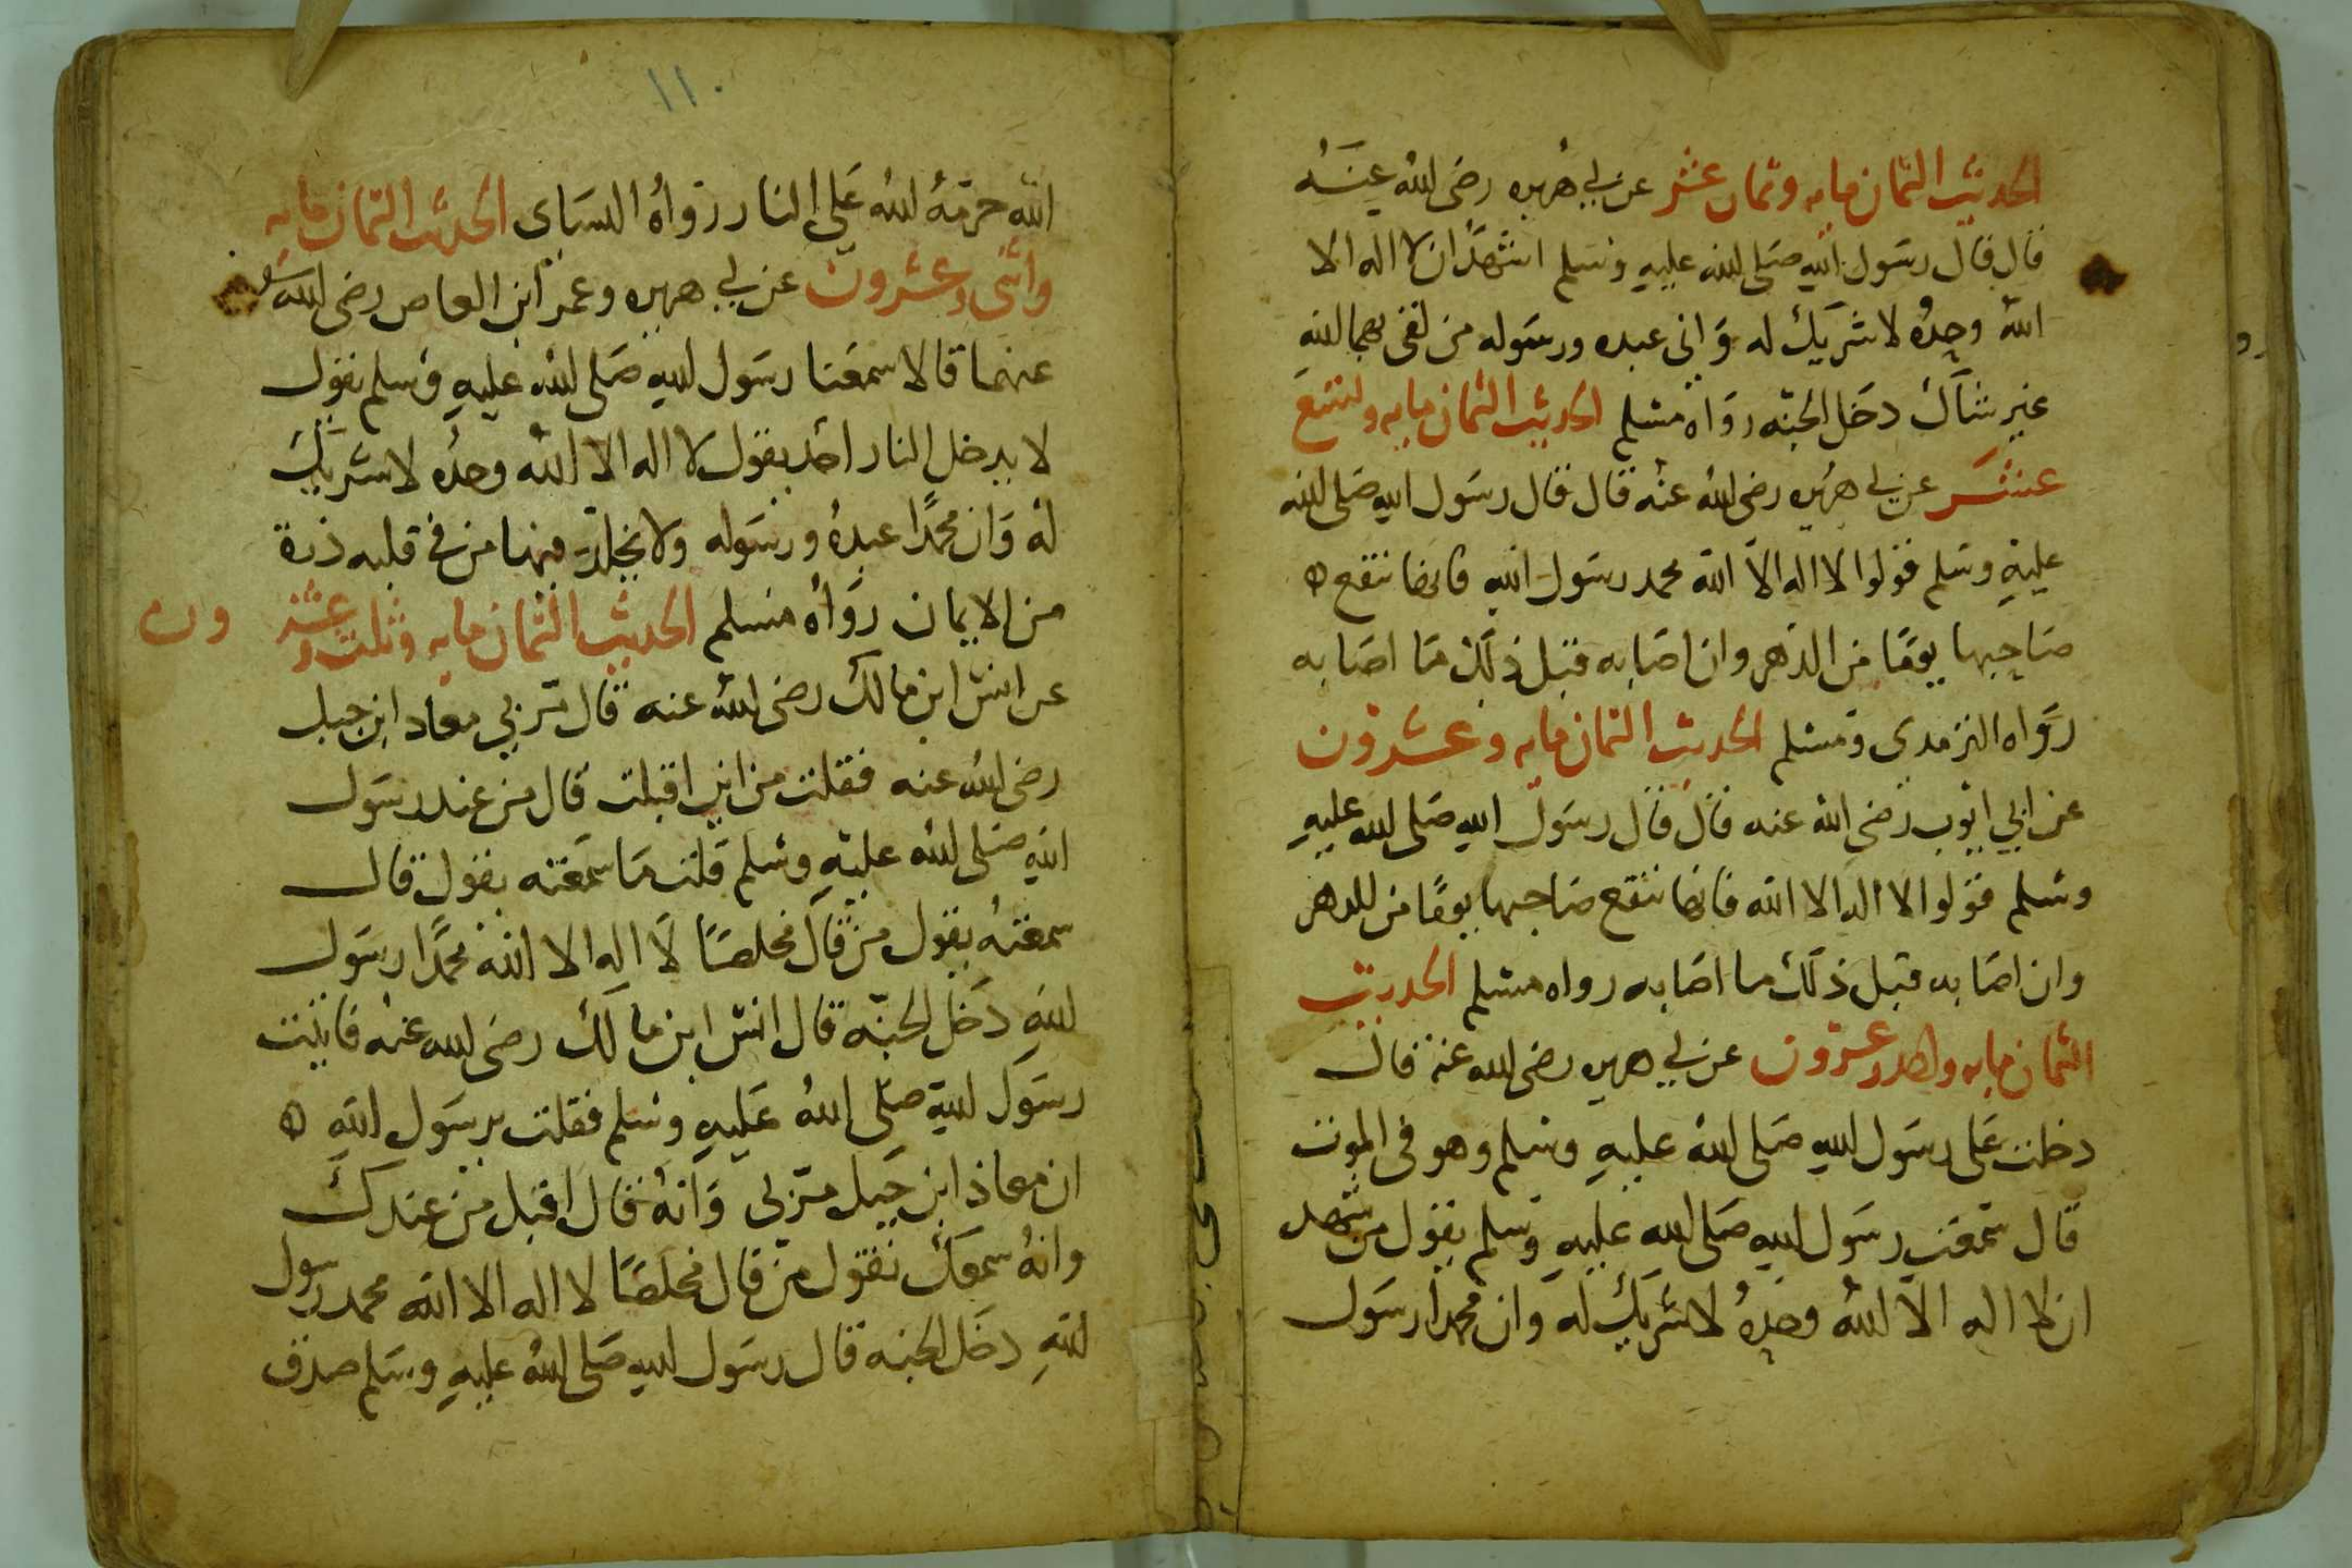 الحديث الثمان مايه وثمان عشر عن ابي هريره رضى الله عنه
قال قال رسول الله صلى الله عليه وسلم اشهد ان لا اله الا
الله وحده لا شريك له وانى عبده ورسوله من لقى بهما الله
غير شاك دخل الجنه رواه مسلم الحديث الثمان مايه وتسع
عشر عن ابي هريره رضى الله عنه قال قال رسول الله صلى الله
عليه وسلم قولوا لا اله الا الله محمد رسول الله فانها تنفع ه
صاحبها يومًا من الدهر وان اصابه قبل ذلك ما اصابه
رواه الترمدى ومسلم الحديث الثمان مايه وعشرون
عن ابي ايوب رضى الله عنه قال قال رسول الله صلى الله عليه
وسلم قولوا لا اله الا الله فانها تنفع صاحبها يومًا من الدهر
وان اصابه قبل ذلك ما اصابه رواه مسلم الحديث
الثمان مايه واحد وعشرون عن ابي هريره رضى الله عنه قال
دخلت على رسول الله صلى الله عليه وسلم وهو فى الموت
قال سمعت رسول الله صلى الله عليه وسلم يقول من شهد
ان لا اله الا الله وحده لا شريك له وان محمدا رسول
١١٠
الله حرمه الله على النار رواه النساى الحديث الثمان مايه
واثنى وعشرون عن ابي هريره وعمر ابن العاص رضى الله
عنهما قالا سمعنا رسول الله صلى الله عليه وسلم يقول
لا يدخل النار احد يقول لا اله الا الله وحده لا شريك
له وان محمدًا عبده ورسوله ولا يخلد فيها من فى قلبه ذرة
من الايمان رواه مسلم الحديث الثمان مايه وثلث وعشر ون
عن انس ابن مالك رضى الله عنه قال مر بي معاد ابن جبل
رضى الله عنه فقلت من اين اقبلت قال من عند رسول
الله صلى الله عليه وسلم قلت ما سمعته يقول قال
سمعته يقول من قال مخلصًا لا اله الا الله محمدًا رسول
الله دخل الجنه قال انس ابن مالك رضى الله عنه فاتيت
رسول الله صلى الله عليه وسلم فقلت يرسول الله ه
ان معاذ ابن جبل مر بى وانه قال اقبل من عندك
وانه سمعك تقول من قال مخلصًا لا اله الا الله محمد رسول
الله دخل الجنه قال رسول الله صلى الله عليه وسلم صدق